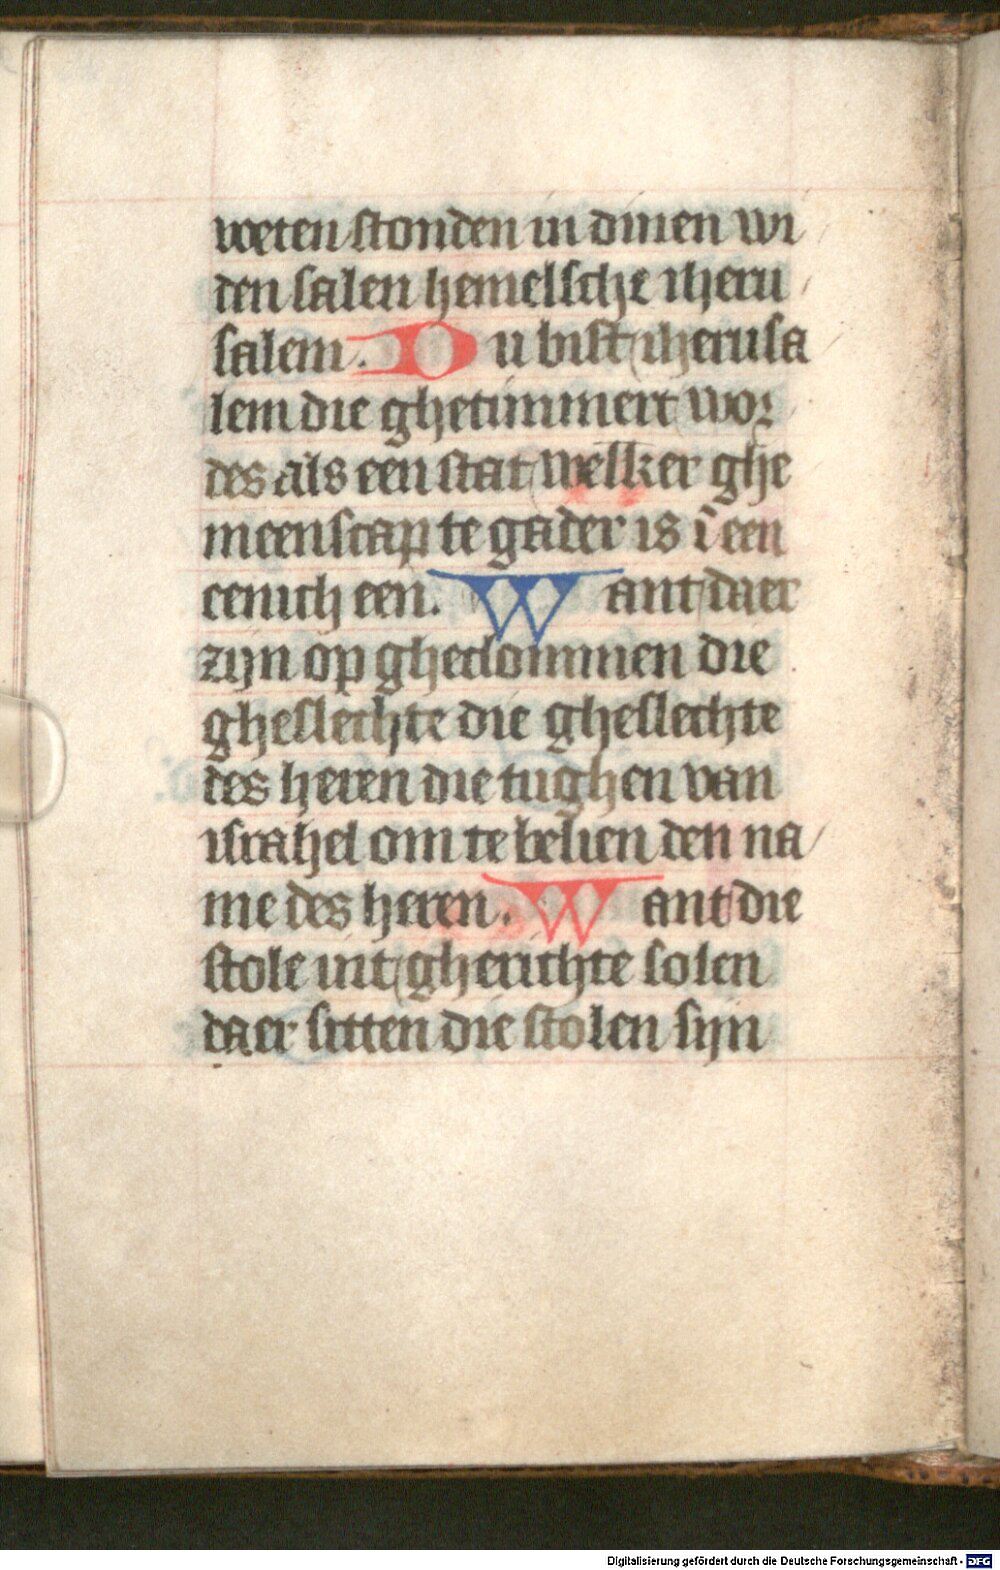 weten stonden in dinen wi
den salen hemelsche iheru
salem. Du bist iherusa
lem die ghetimmert wor
des als een stat welker ghe
meenscap te gader is ī een
eenich een. Want daer
zijn op gheclommen die
gheslechte die gheslechte
des heren die tughen van
israhel om te belien den na
me des heren. Want die
stole int gherichte solen
daer sitten die stolen sijn
Digitalisierung gefördert durch die Deutsche Forschungsgemeinschaft - DFG